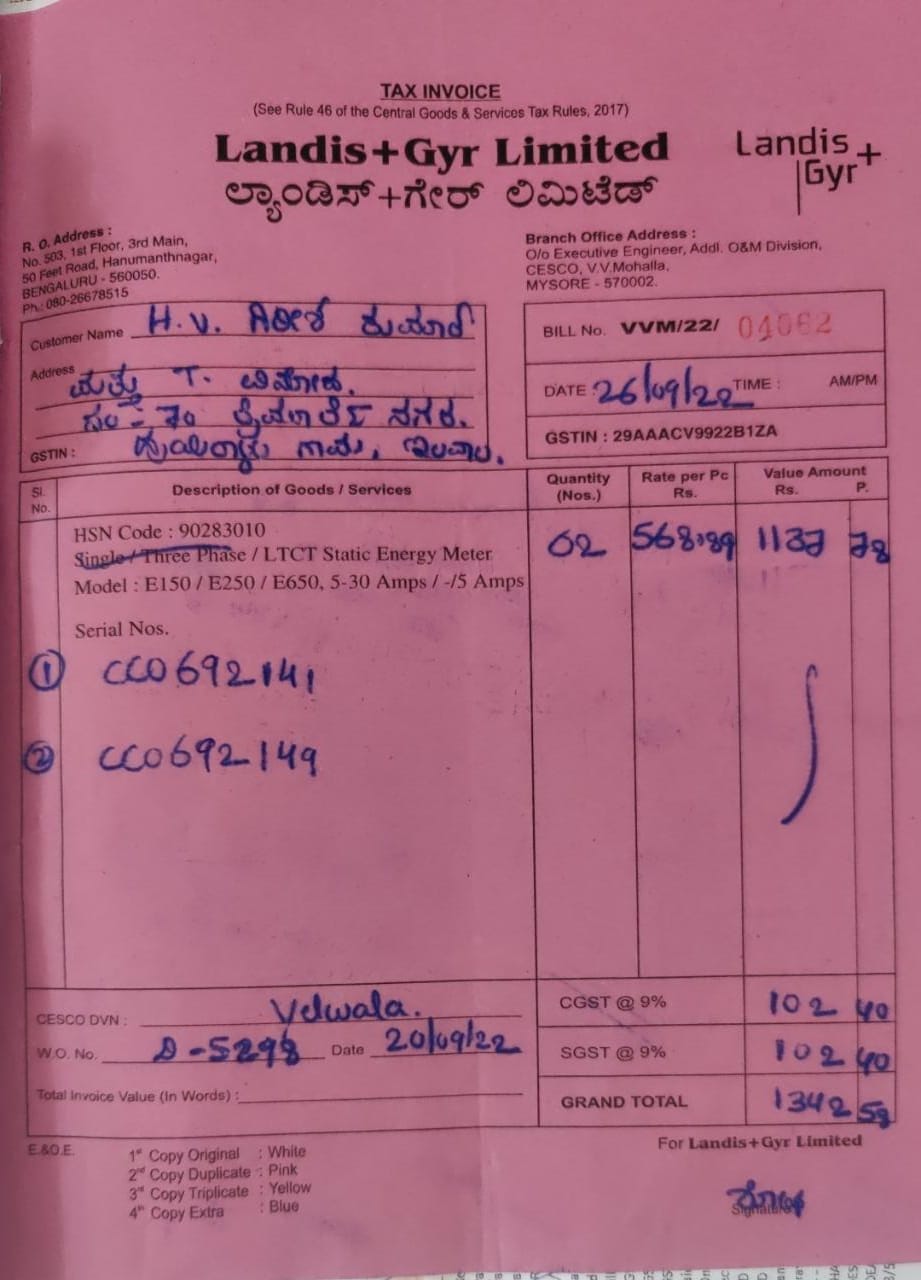 TAX INVOICE
(See Rule 46 of the Central Goods & Services Tax Rules, 2017)
Landis+Gyr Limited
ಲ್ಯಾಂಡಿಸ್+ಗೇರ್ ಲಿಮಿಟೆಡ್
Landis
Gyr+
R. O. Address :
No. 503, 1st Floor, 3rd Main,
50 Feet Road, Hanumanthnagar,
BENGALURU - 560050.
Ph.: 080-26678515
Branch Office Address :
O/o Executive Engineer, Addl. O&M Division,
CESCO, V.V.Mohalla,
MYSORE - 570002.
Customer Name H.V. ಗಿರೀಶ ಕುಮಾರ್
Address ಮತ್ತು T. ವಿನೋದ.
ನಂ - 70
ನಗರ.
GSTIN : ಗ್ರಾಮ, ಇಲವಾಲ.
BILL No. VVM/22/ 04062
DATE : 26/09/22 TIME : AM/PM
GSTIN : 29AAACV9922B1ZA
Sl. No. Description of Goods / Services Quantity (Nos.) Rate per Pc Rs. Value Amount Rs. P.
HSN Code : 90283010
Single / Three Phase / LTCT Static Energy Meter 02 568.89 1137 78
Model : E150 / E250 / E650, 5-30 Amps / -/5 Amps
Serial Nos.
① CC0692141
② CC0692149
CESCO DVN : Yelwala.
W.O. No. D-5298 Date 20/09/22
Total Invoice Value (In Words) :
CGST @ 9% 102 40
SGST @ 9% 102 40
GRAND TOTAL 1342 58
E.&O.E.
1st Copy Original : White
2nd Copy Duplicate : Pink
3rd Copy Triplicate : Yellow
4th Copy Extra : Blue
For Landis+Gyr Limited
Signature